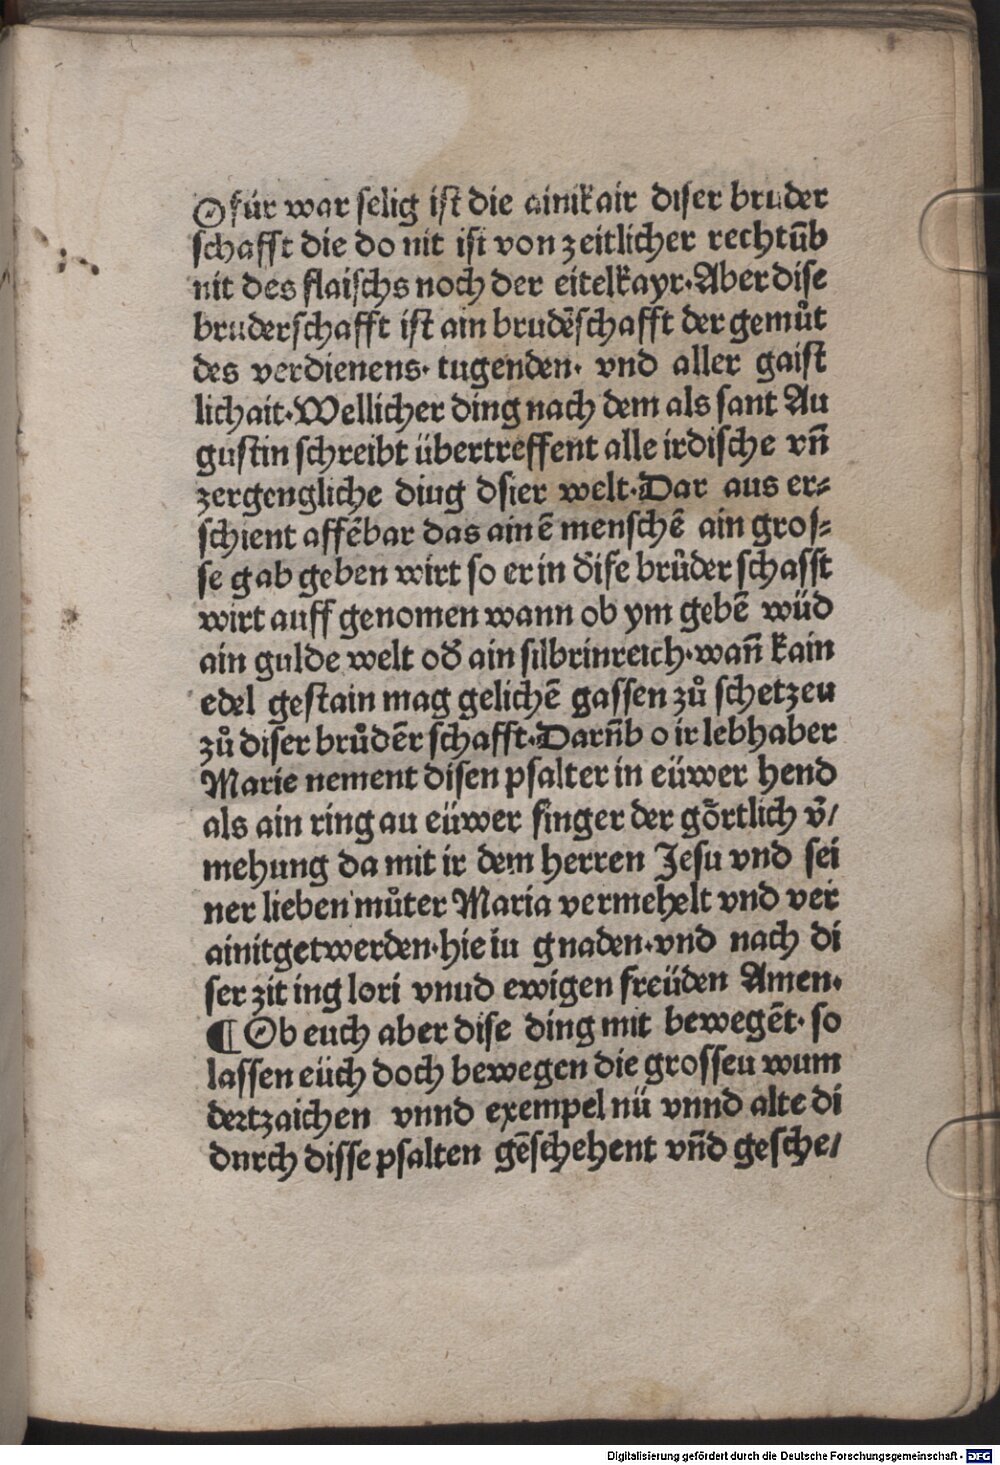 O für war selig ist die ainikair diser bruder
schafft die do nit ist von zeitlicher rechtūb
nit des flaischs noch der eitelkayr·Aber dise
bruderschafft ist ain brudēschafft der gemuͤt
des verdienens· tugenden· vnd aller gaist
lichait·Wellicher ding nach dem als sant Au
gustin schreibt übertreffent alle irdische vn̄
zergengliche diug dsier welt·Dar aus er⸗
schient affēbar das ain ē menschē ain gros⸗
se gab geben wirt so er in d̄ise bruͤder schafft
wirt auff genomen wann ob ym gebē wüd
ain gulde welt od̄ ain silbrinreich·wan̄ kain
edel gestain mag gelichē gassen zuͦ schetzeu
zuͦ diser bruͦdēr schafft·Darn̄b o ir lebhaber
Marie nement disen psalter in eüwer hend
als ain ring au eüwer finger der gōrtlich v̄/
mehung da mit ir dem herren Jesu vnd sei
ner lieben muͦter Maria vermehelt vnd ver
ainitgetwerden·hie iu gnaden·vnd nach di
ser zit ing lori vnud ewigen freüden Amen·
¶ Ob euch aber dise ding mit bewegēt· so
lassen eüch doch bewegen die grosseu wum
dertzaichen vnnd exempel nü vnnd alte di
dnrch disse psalten gēschehent vn̄d gesche/
Digitalisierung gefördert durch die Deutsche Forschungsgemeinschaft - DFG